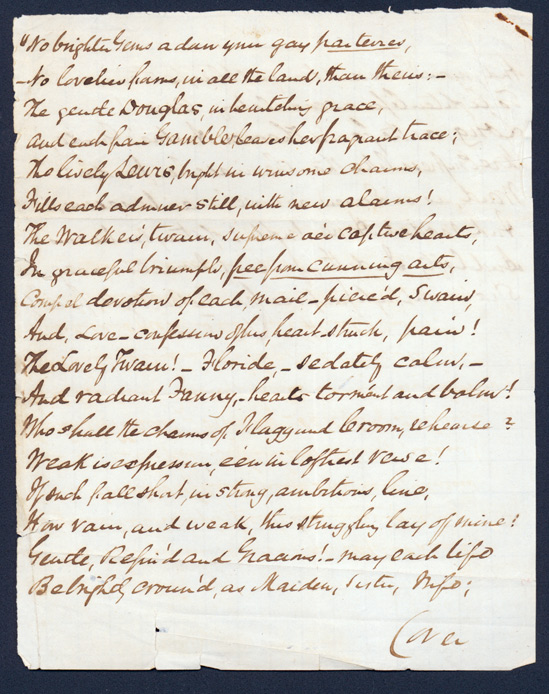 "No brighter Gems adorn your gay parterres,
– No lovelier forms, in all the land, than theirs: –
The gentle Douglas, in bewitching grace,
And each fair Gamble, leaves her fragrant trace;
The lively Lewis, bright in winsome charms,
Fills each admirer still, with new alarms!
The Walkers, twain, supreme o'er captive hearts,
In graceful triumph, free from cunning arts,
Compel devotion of each, mail-pierc'd, Swain,
And, Love-confession of his, heart-struck, pain!
The Lovely Twain! – Floride, – sedately calm, –
And radiant Fanny, – hearts torment and balm!
Who shall the charms of Flagg and Croom, rehearse?
Weak is expression, e'en in loftiest verse!
If such fall short, in strong, ambitious, line,
How vain, and weak, this struggling lay of mine!
Gentle, Refin'd and Gracious! – may each life
Be brightly crown'd, as Maiden, Sister, Wife;
(over